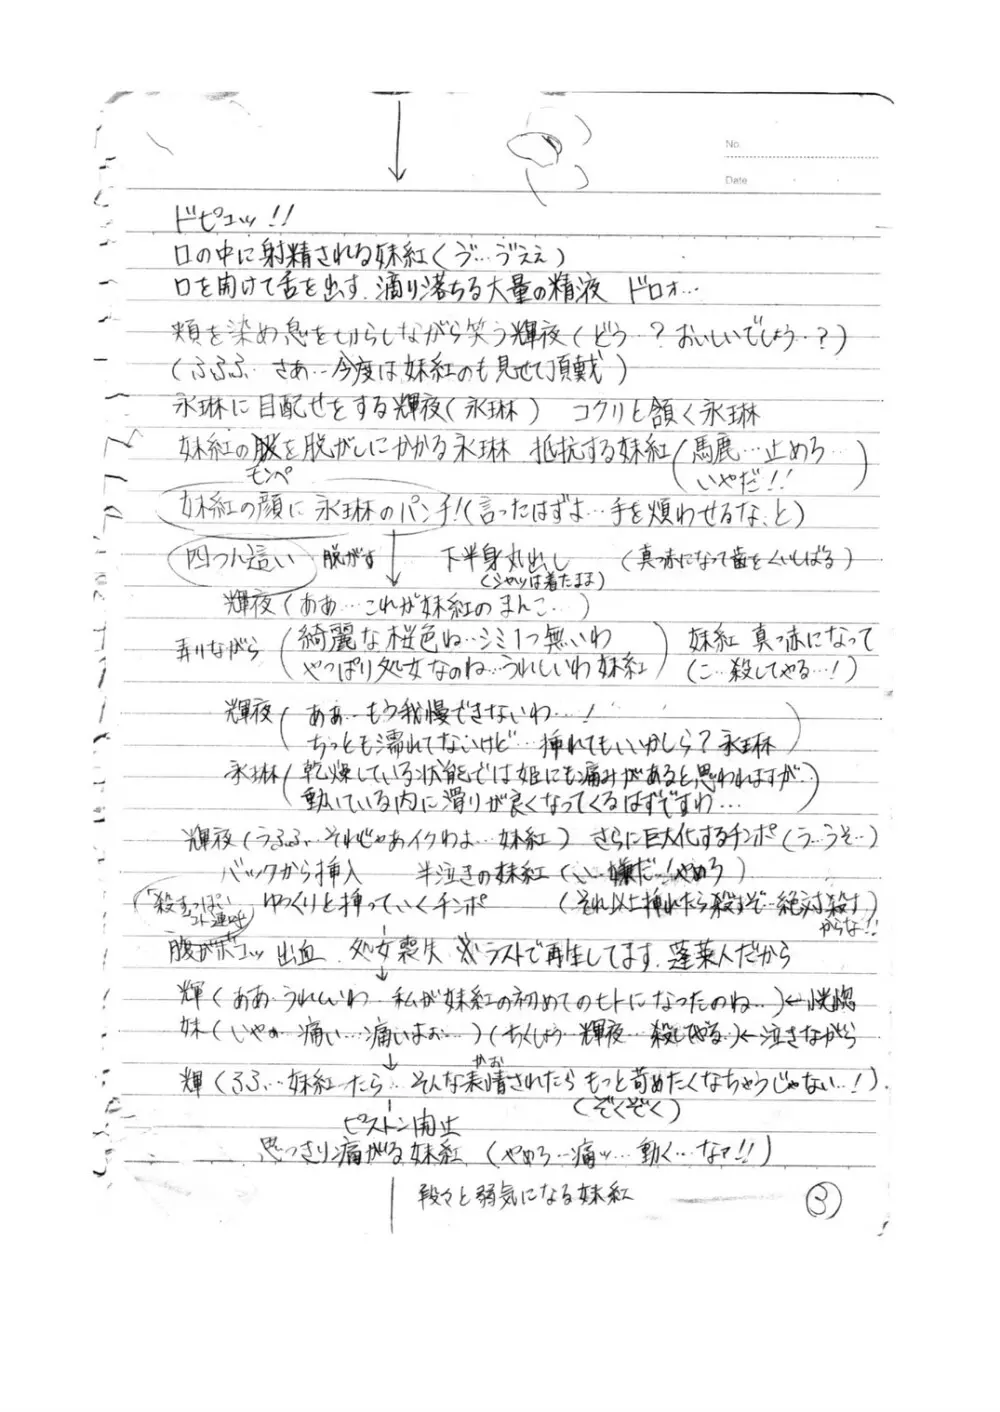 No.
Date
ドピュッ!!
口の中に射精される妹紅(ゔ…ゔええ)
口を開けて舌を出す、滴り落ちる大量の精液 ドロォ…
頬を染め息を切らしながら笑う輝夜(どう…?おいしいでしょう…?)
(ふふふ…さあ…今度は妹紅のも見せて頂戴)
永琳に目配せをする輝夜(永琳) コクリと頷く永琳
妹紅の服を脱がしにかかる永琳 抵抗する妹紅(馬鹿…止めろ…
モンペ いやだ!!)
妹紅の顔に永琳のパンチ!(言ったはずよ…手を煩わせるな、と)
四つん這い 脱がす 下半身丸出し (真っ赤になって歯をくいしばる)
(シャツは着たまま)
輝夜(ああ…これが妹紅のまんこ…)
弄りながら(綺麗な桜色ね…シミ1つ無いわ 妹紅 真っ赤になって
やっぱり処女なのね…うれしいわ妹紅) (こ…殺してやる…!)
輝夜(ああ…もう我慢できないわ…!
ちっとも濡れてないけど…挿れてもいいかしら?永琳)
永琳(乾燥している状態では姫にも痛みがあると思われますが…
動いている内に滑りが良くなってくるはずですわ…)
輝夜(うふふ…それじゃあイクわよ…妹紅) さらに巨大化するチンポ(う…うそ…)
バックから挿入 半泣きの妹紅(い…嫌だ…!やめろ)
「殺すっぽいコト連呼」 ゆっくりと挿っていくチンポ (それ以上挿れたら殺すぞ…絶対殺す
からな!!)
腹がボコッ 出血 処女喪失 ※ラストで再生してます、蓬莱人だから
輝(ああ…うれしいわ…私が妹紅の初めてのヒトになったのね…)←恍惚
妹(いやぁ…痛い…痛いよぉ…)(ちくしょう…輝夜…殺してやる)←泣きながら
輝(ふふ…妹紅たら…そんな表情されたらもっと苛めたくなちゃうじゃない…!)
かお
(ぞくぞく)
ピストン開始
思っきり痛がる妹紅 (やめろ…痛ッ…動く…なァ!!)
段々と弱気になる妹紅
③